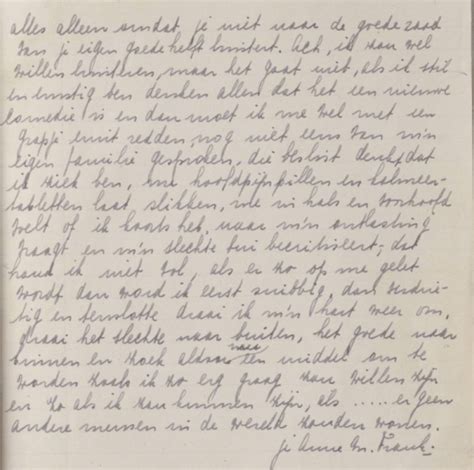 alles alleen omdat je niet naar de goede raad
van je eigen goede helft luistert. Ach, ik zou wel
willen luisteren, maar het gaat niet, als ik stil
en ernstig ben denken allen dat het een nieuwe
comedie is en dan moet ik me wel met een
grapje eruit redden, nog niet eens van m'n
eigen familie gesproken, die beslist denkt dat
ik ziek ben, me hoofdpijnpillen en kalmeer-
tabletten laat slikken, me in hals en voorhoofd
voelt of ik koorts heb, naar m'n ontlasting
vraagt en m'n slechte bui becritiseert; dat
houd ik niet vol, als er zo op me gelet
wordt dan word ik eerst snibbig, dan verdrie-
tig en tenslotte draai ik m'n hart weer om,
draai het slechte naar buiten, het goede naar
binnen en zoek aldoor naar een middel om te
worden zoals ik zo erg graag zou willen zijn
en zo als ik zou kunnen zijn, als ..... er geen
andere mensen in de wereld zouden wonen.
je Anne M. Frank.